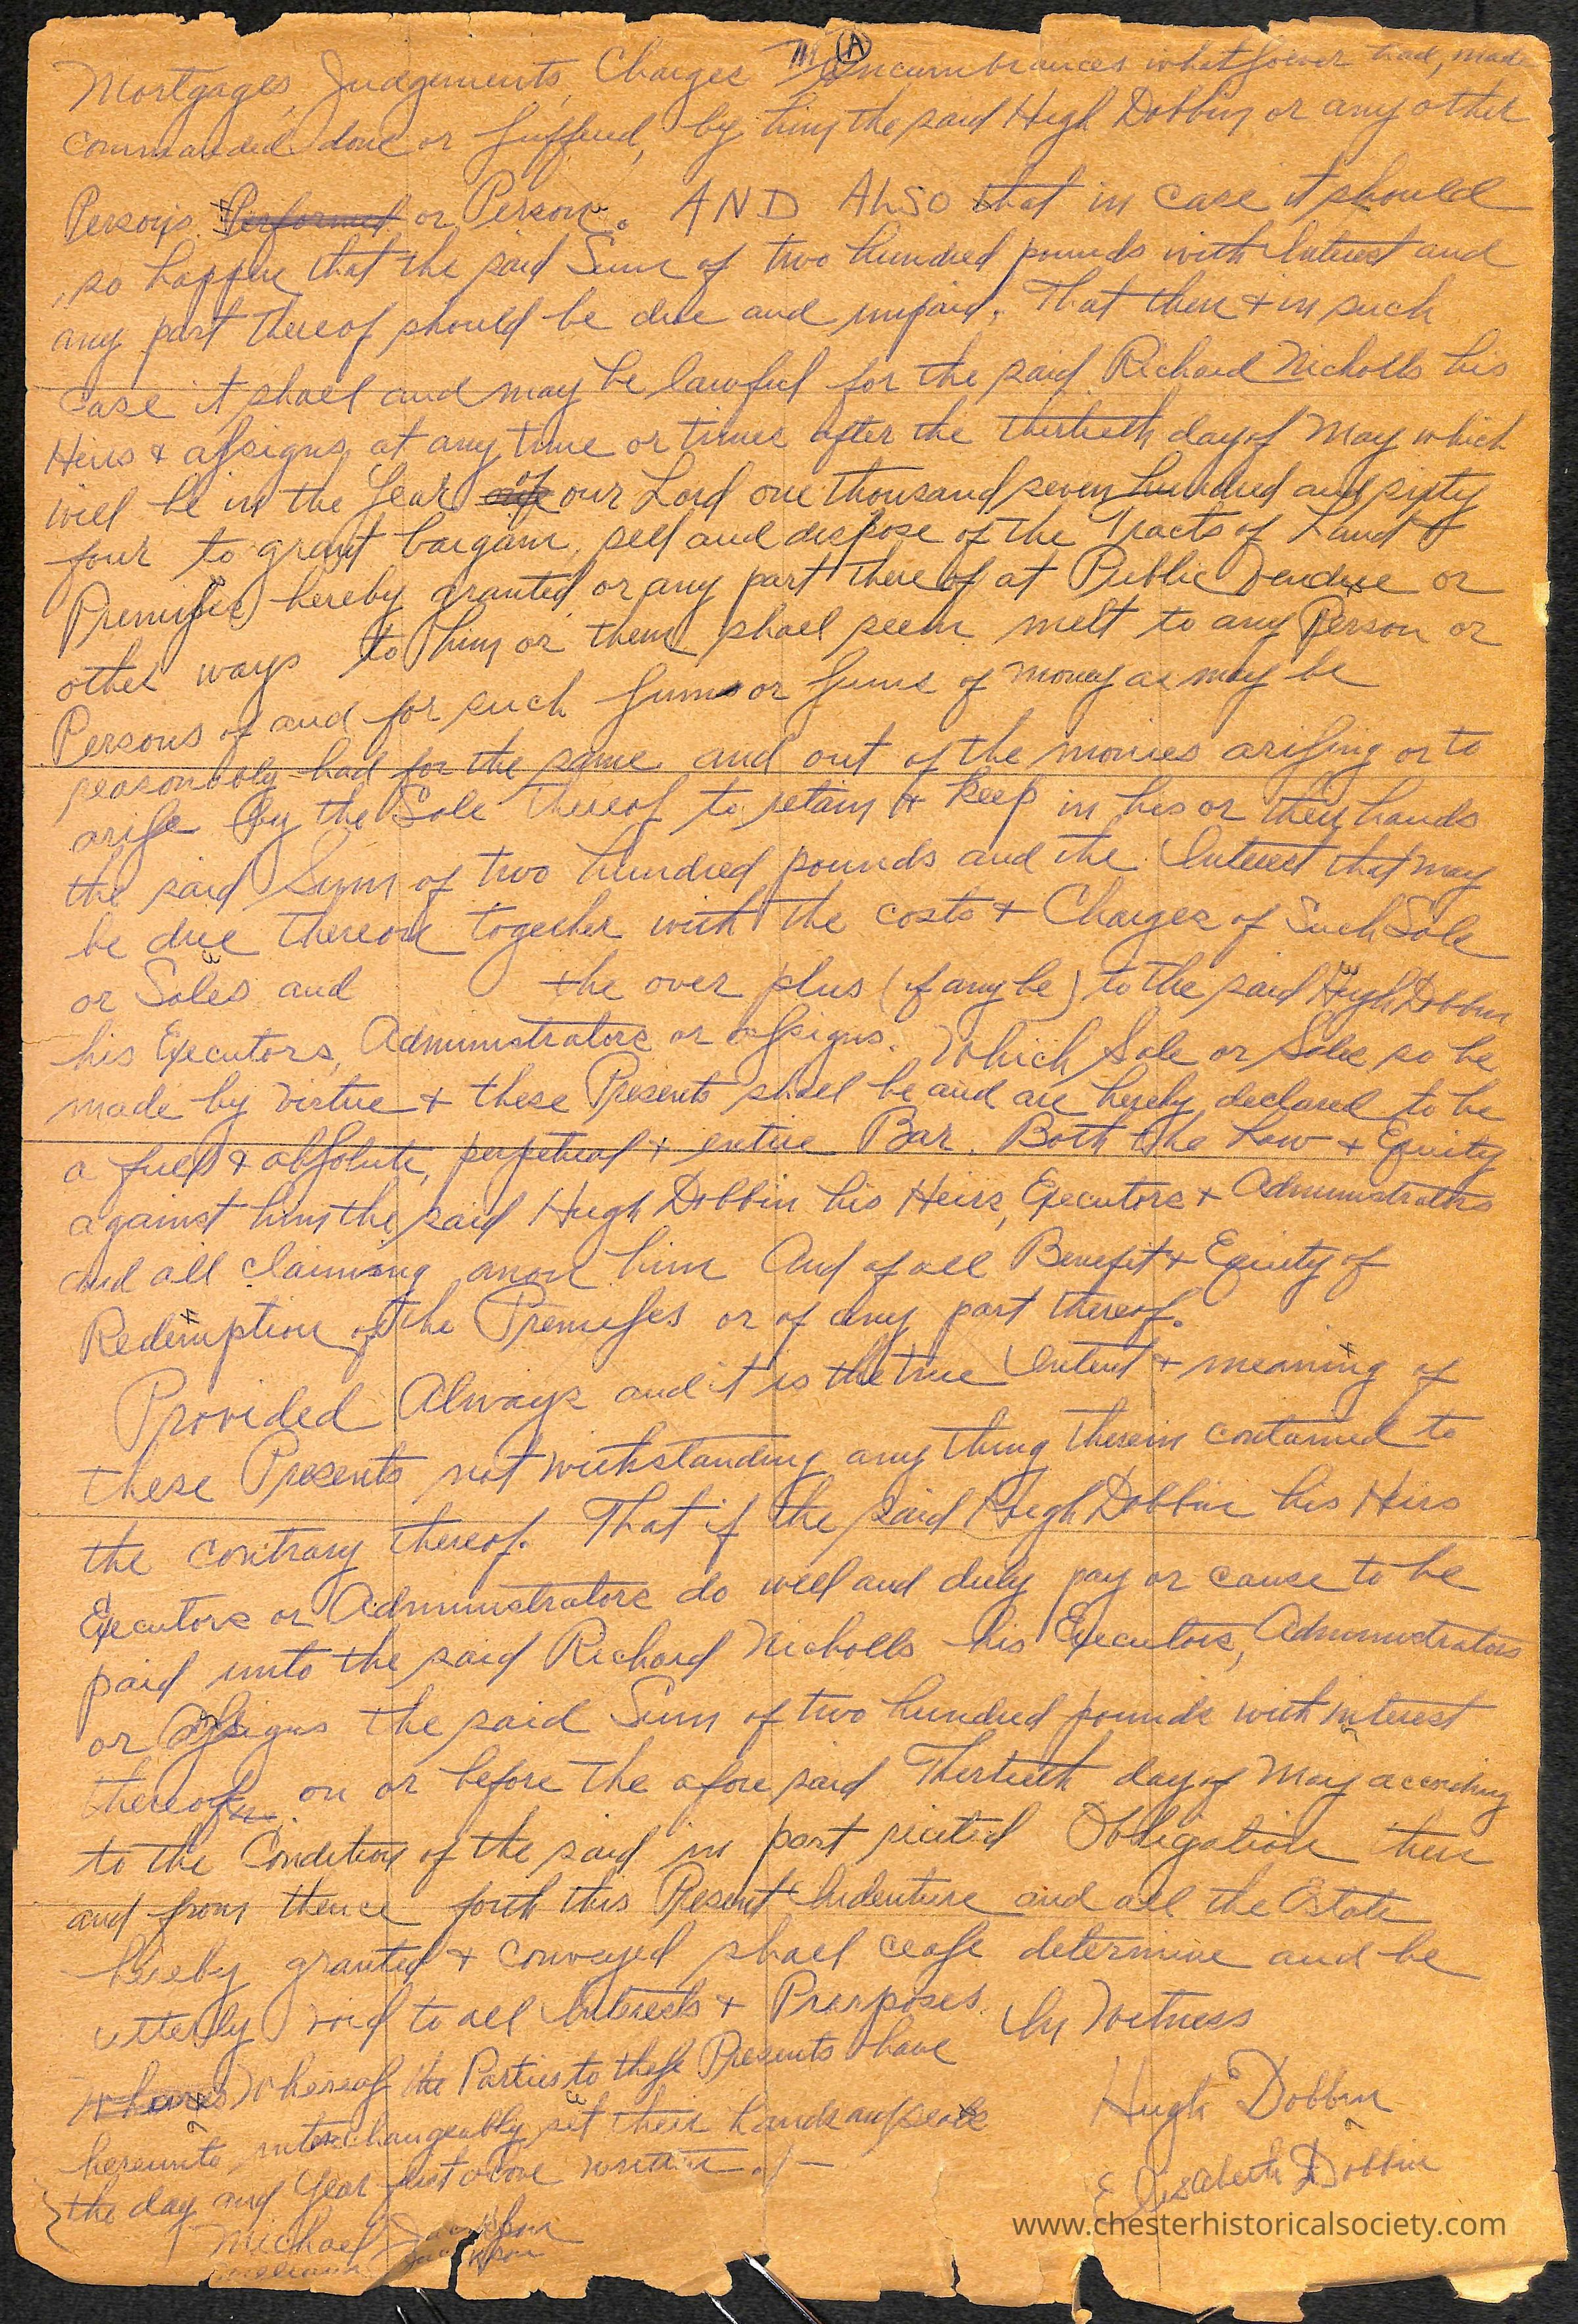 (A)
Mortgages, Judgements, Charges Incumbrances whatsoever had, made
commanded done or suffered, by him the said Hugh Dobbin or any other
Persons Performed or Person. AND ALSO that in case it should
so happen that the said Sum of two hundred pounds with Interest and
any part thereof should be due and unpaid. That then + in such
Case it shall and may be lawful for the said Richard Nicholls his
Heirs + assigns at any time or times after the thirtieth day of May which
will be in the Year of our Lord one thousand seven hundred and sixty
four to grant bargain, sell and dispose of the Tracts of Land +
Premises hereby granted or any part there of at Public Vendue or
other ways to him or them shall seem melt to any Person or
Persons of and for such sum or sums of money as may be
reasonably had for the same and out of the monies arising or to
arise by the Sale thereof to retain + keep in his or their hands
the said Sum of two hundred pounds and the Interest that may
be due thereon together with the costs + Charges of Such Sale
or Sales and the over plus (if any be) to the said Hugh Dobbin
his Executors, Administrators or assigns. Which Sale or Sales so be
made by virtue + these Presents shall be and are hereby declared to be
a full + absolute, perpetual + entire Bar. Both the Law + Equity
against him the said Hugh Dobbin his Heirs, Executors + Administrators
and all claiming anon him And of all Benefit + Equity of
Redemption of the Premises or of any part thereof.
Provided Always and it is the true Intent + meaning of
these Presents not withstanding any thing therein contained to
the contrary thereof. That if the said Hugh Dobbin his Heirs
Executors or Administrators do well and duly pay or cause to be
paid unto the said Richard Nicholls his Executors, Administrators
or Assigns the said Sum of two hundred pounds with interest
thereof on or before the afore said Thirtieth day of May according
to the Condition of the said in part recited Obligation then
and from thence forth this Present Indenture and all the Estate
hereby granted + conveyed shall cease determine and be
utterly void to all Interests + Purposes. In Witness
Whereof the Parties to these Presents have
hereunto interchangeably set their hands and seals
the day and Year first above written. -
Hugh Dobbin
Elisabeth Dobbin
Michael Jackson
www.chesterhistoricalsociety.com